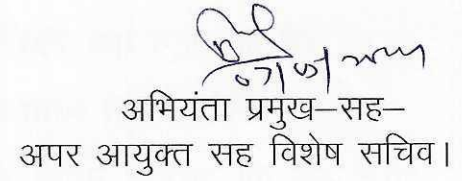 अभियंता प्रमुख–सह–
अपर आयुक्त सह विशेष सचिव।